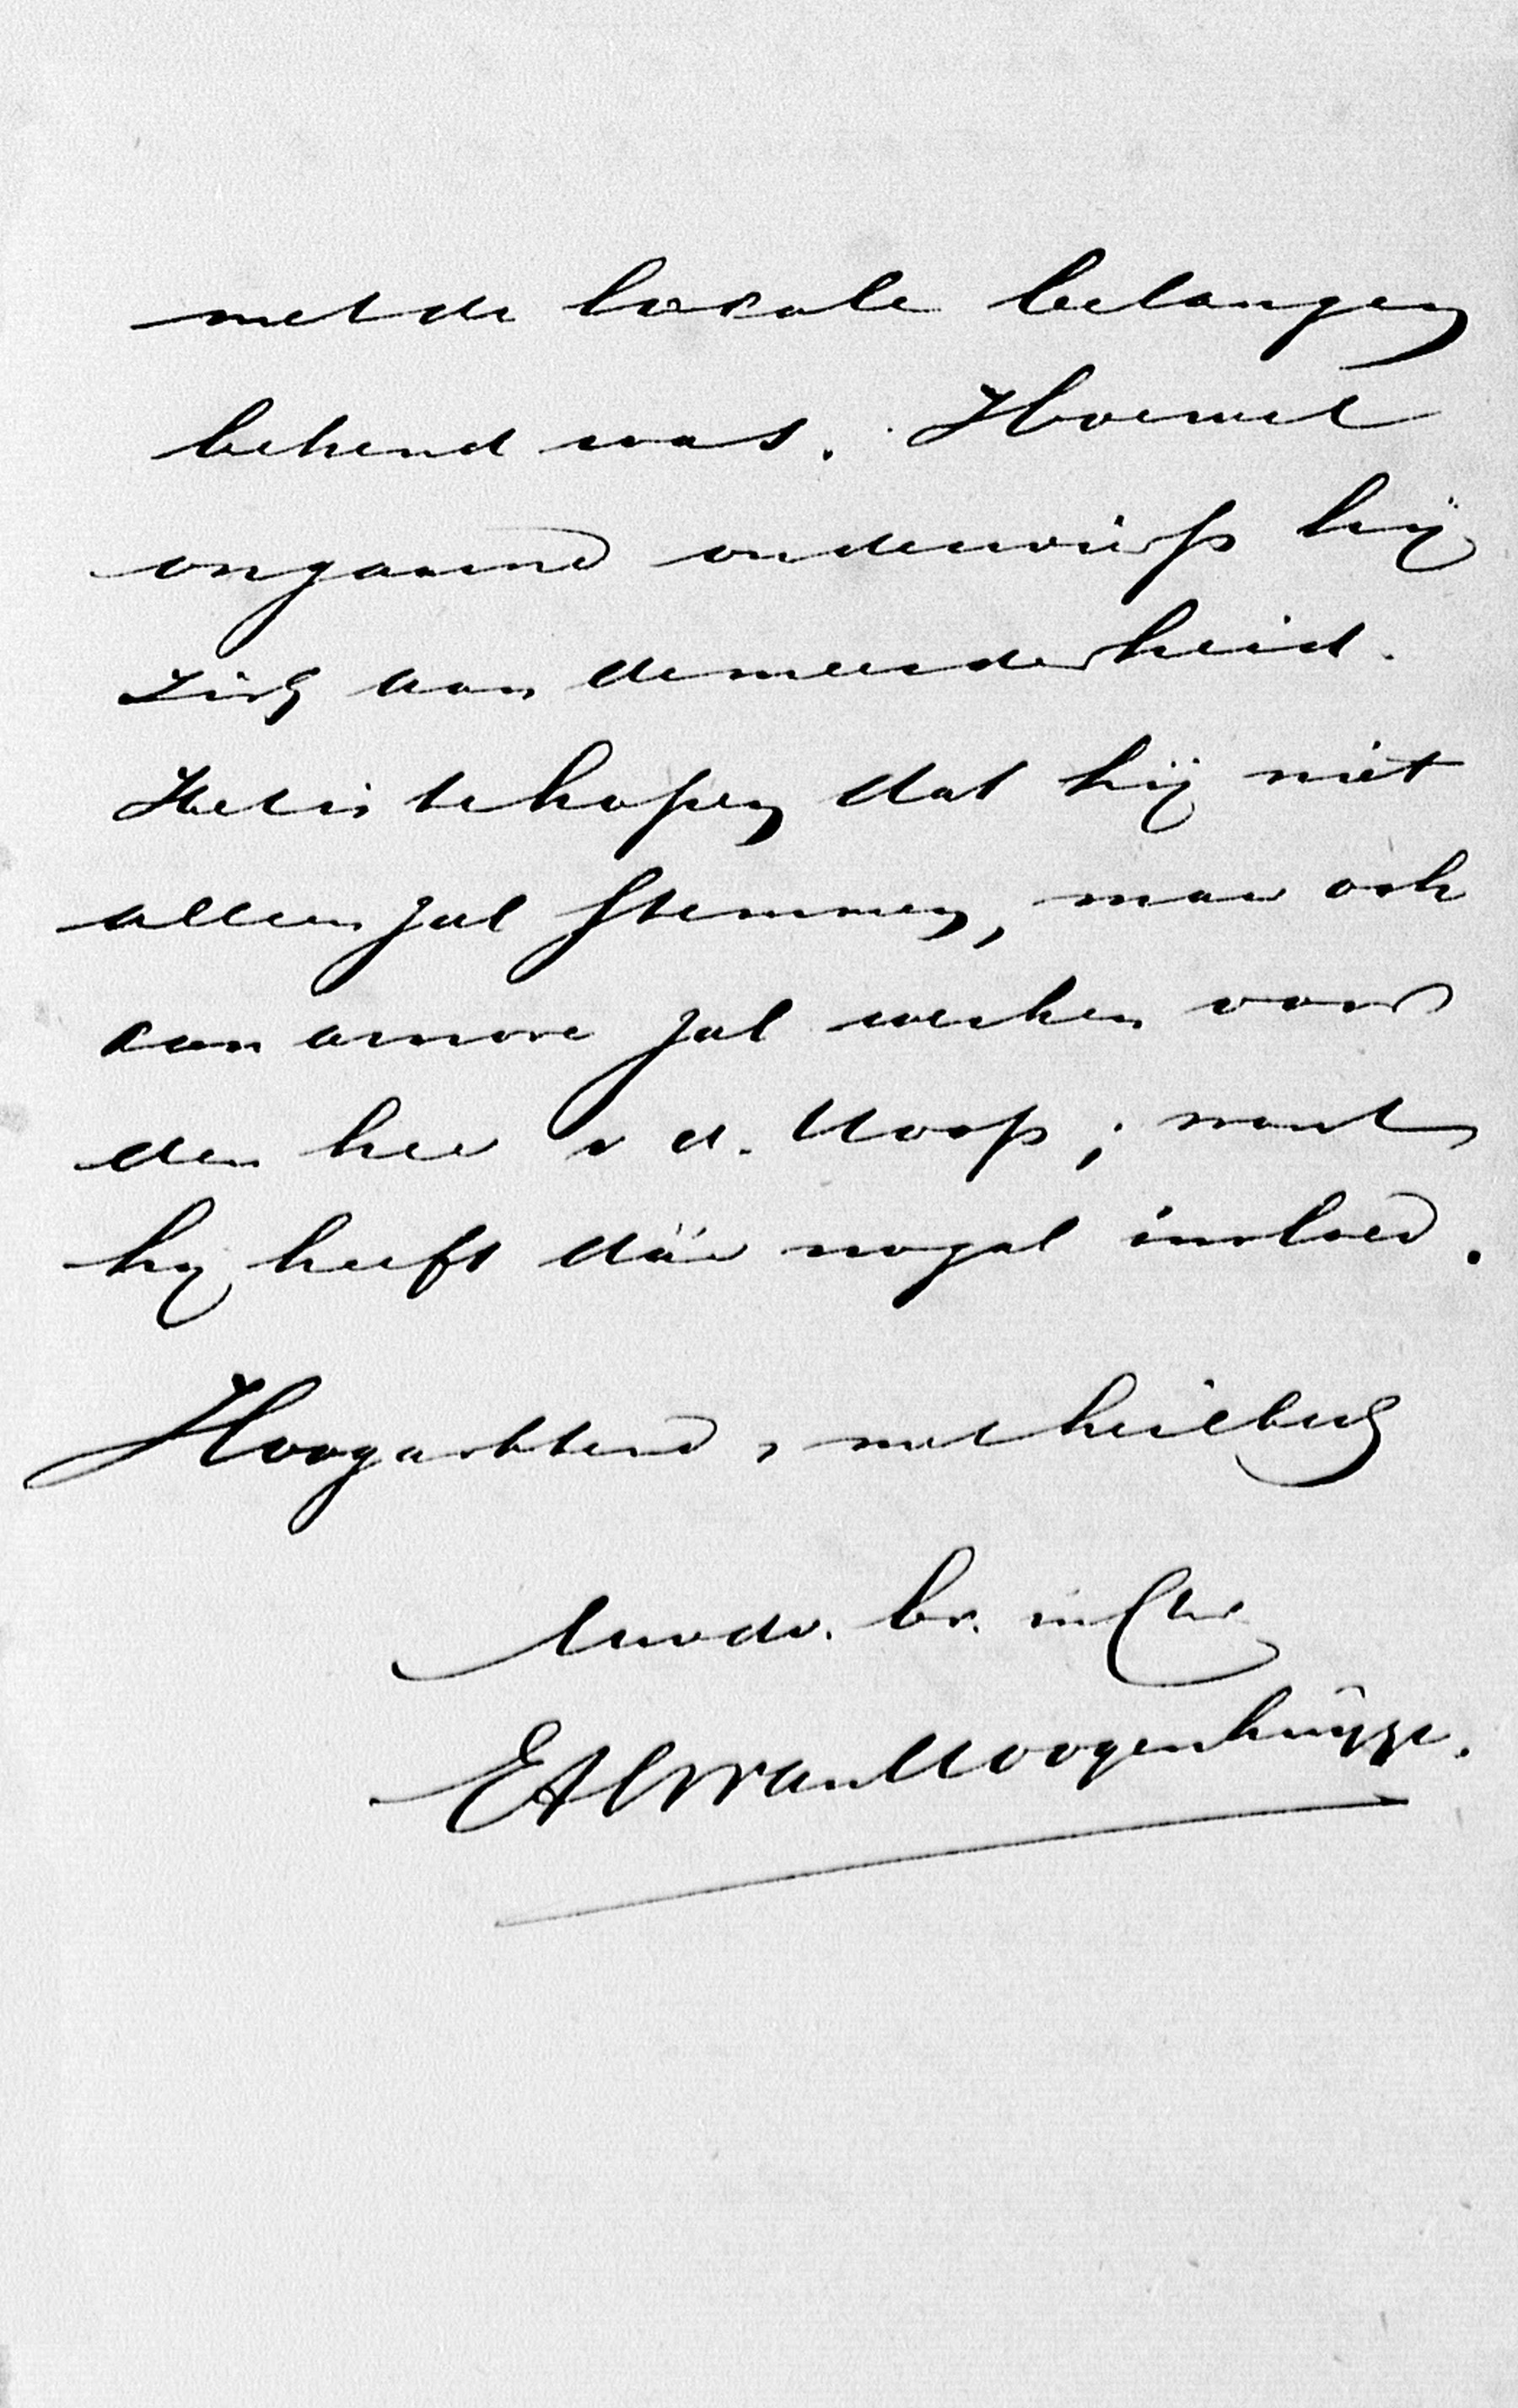 met de locale belangen
bekend was. Hoewel
ongaarne onderwierp hij
zich aan de meerderheid.
Het is te hopen dat hij niet
alleen zal stemmen, maar ook
con amore zal werken voor
den heer v d. ; want
hij heeft dáár nogal invloed.
Hoogachtend, met heilbede
Uw dv. br. in Chr
van Hoogenhuijze.